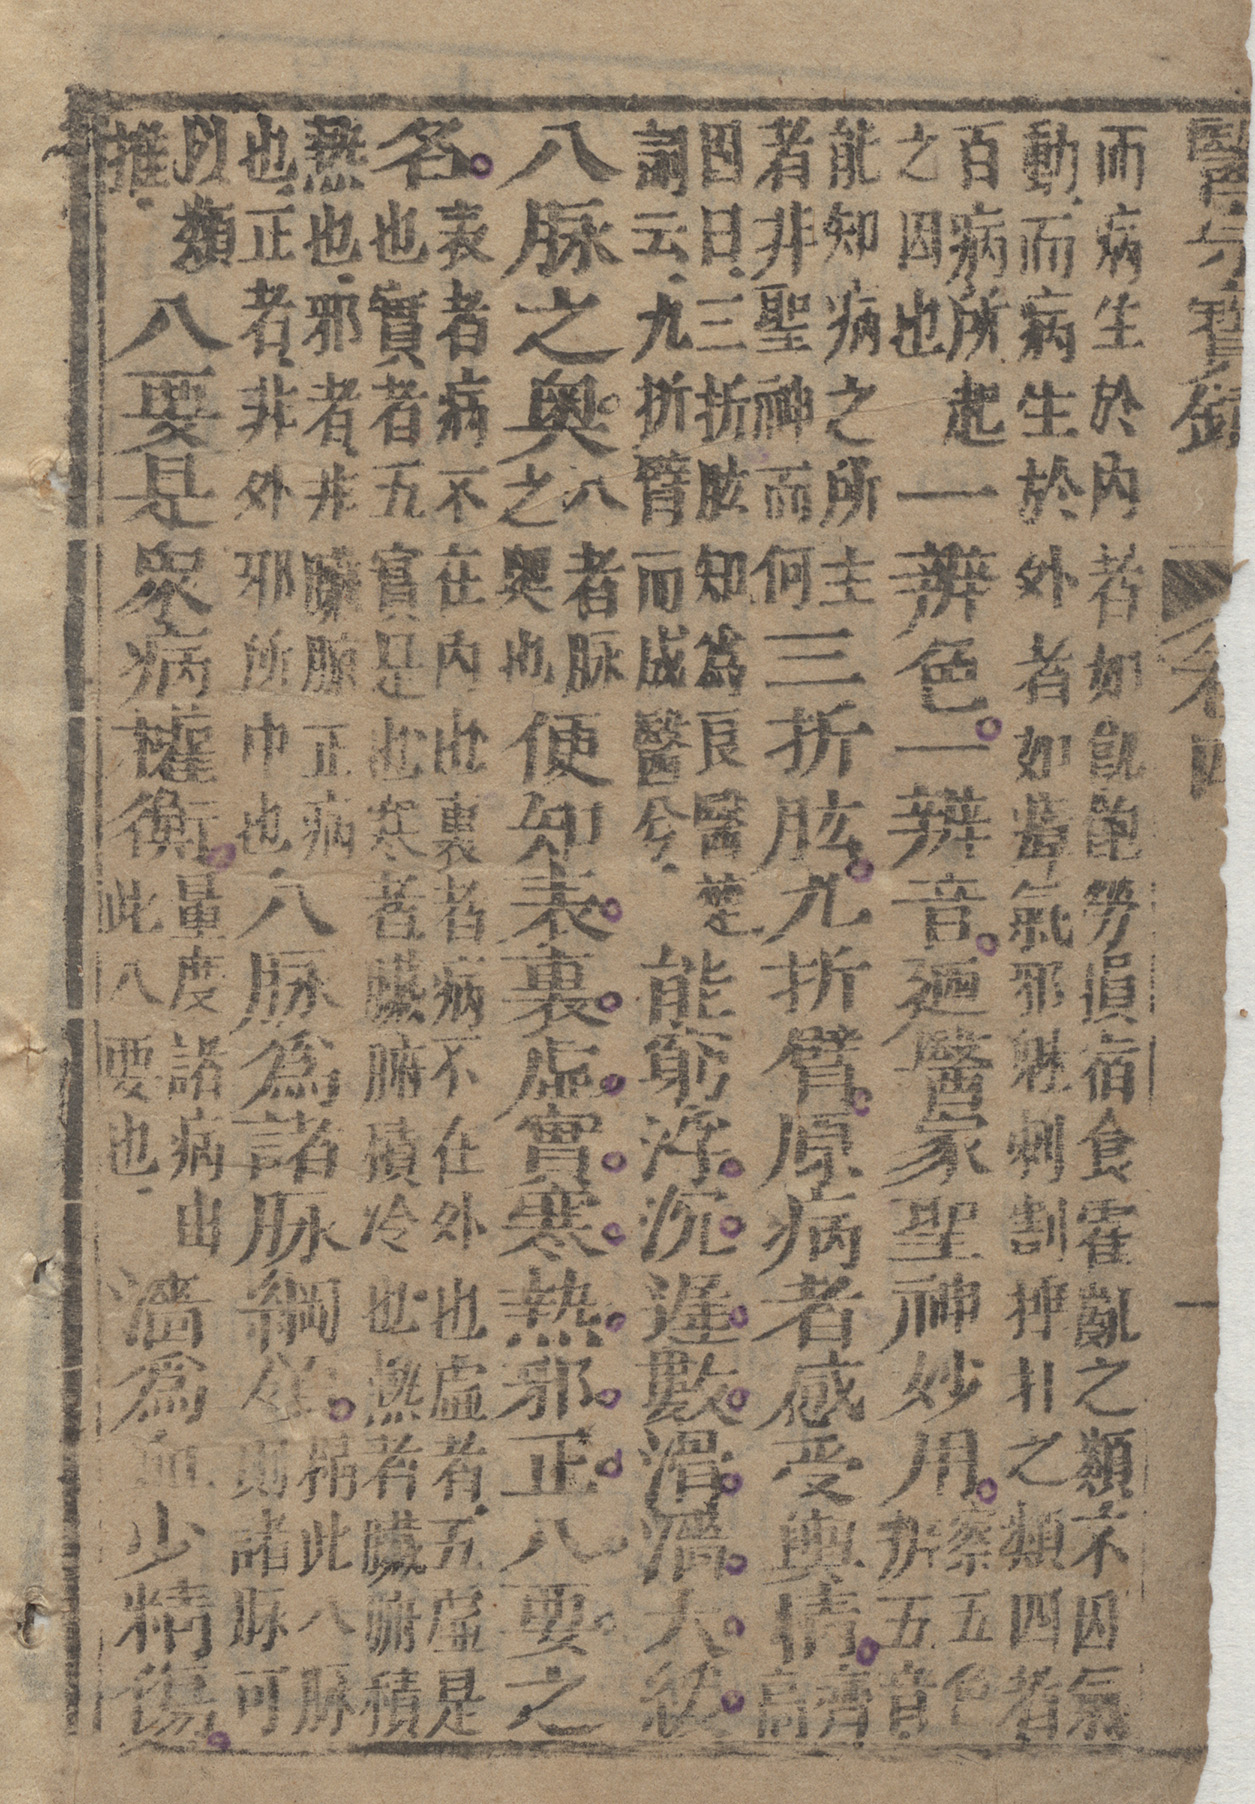 醫方寶鑑 卷四 一
而病生於內者如飢飽勞損宿食霍亂之類不因氣
動而病生於外者如瘴氣邪魅刺割捶扑之類四者
百病所起
之因也
一辨色一辨音廼醫家聖神妙用
察五色
拆五音
能知病之所主
者非聖神而何
三折肱九折臂原病者感受輿情
齊
高
固曰三折肱知為良醫楚
詞云九折臂而成醫兮
能窮浮沉遲數滑濇大緩
八脉之奥
八者脉
之奥也
便知表裏虛實寒熱邪正八要之
名
表者病不在內此裏者病不在外也虛者五虛是
也實者五實是也寒者臟腑積冷也熱者臟腑積
熱也邪者非臟腑正病
也正者非外邪所中也
八脉爲諸脉綱領
揣此八脉
則諸脉可
以類
推
八要是衆病權衡
量度諸病由
此八要也
濇爲血少精傷